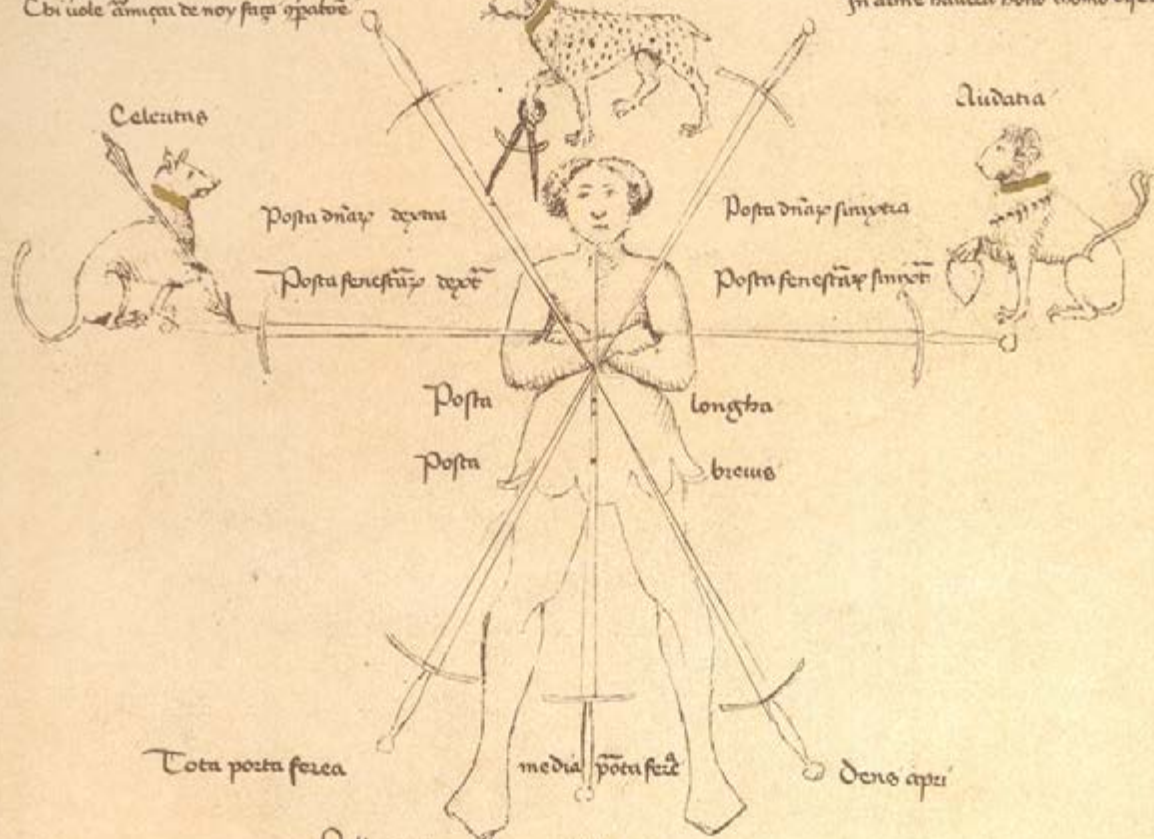 Chi uole
de noy faça
Celeritas
Audatia
Posta dñaꝝ dextra
Posta dñaꝝ sinixtra
Posta fenestãꝝ dext̃
Posta fenestãꝝ sinist̃
Posta longha
Posta breuis
Tota porta ferea
media põta fere
Dens apri